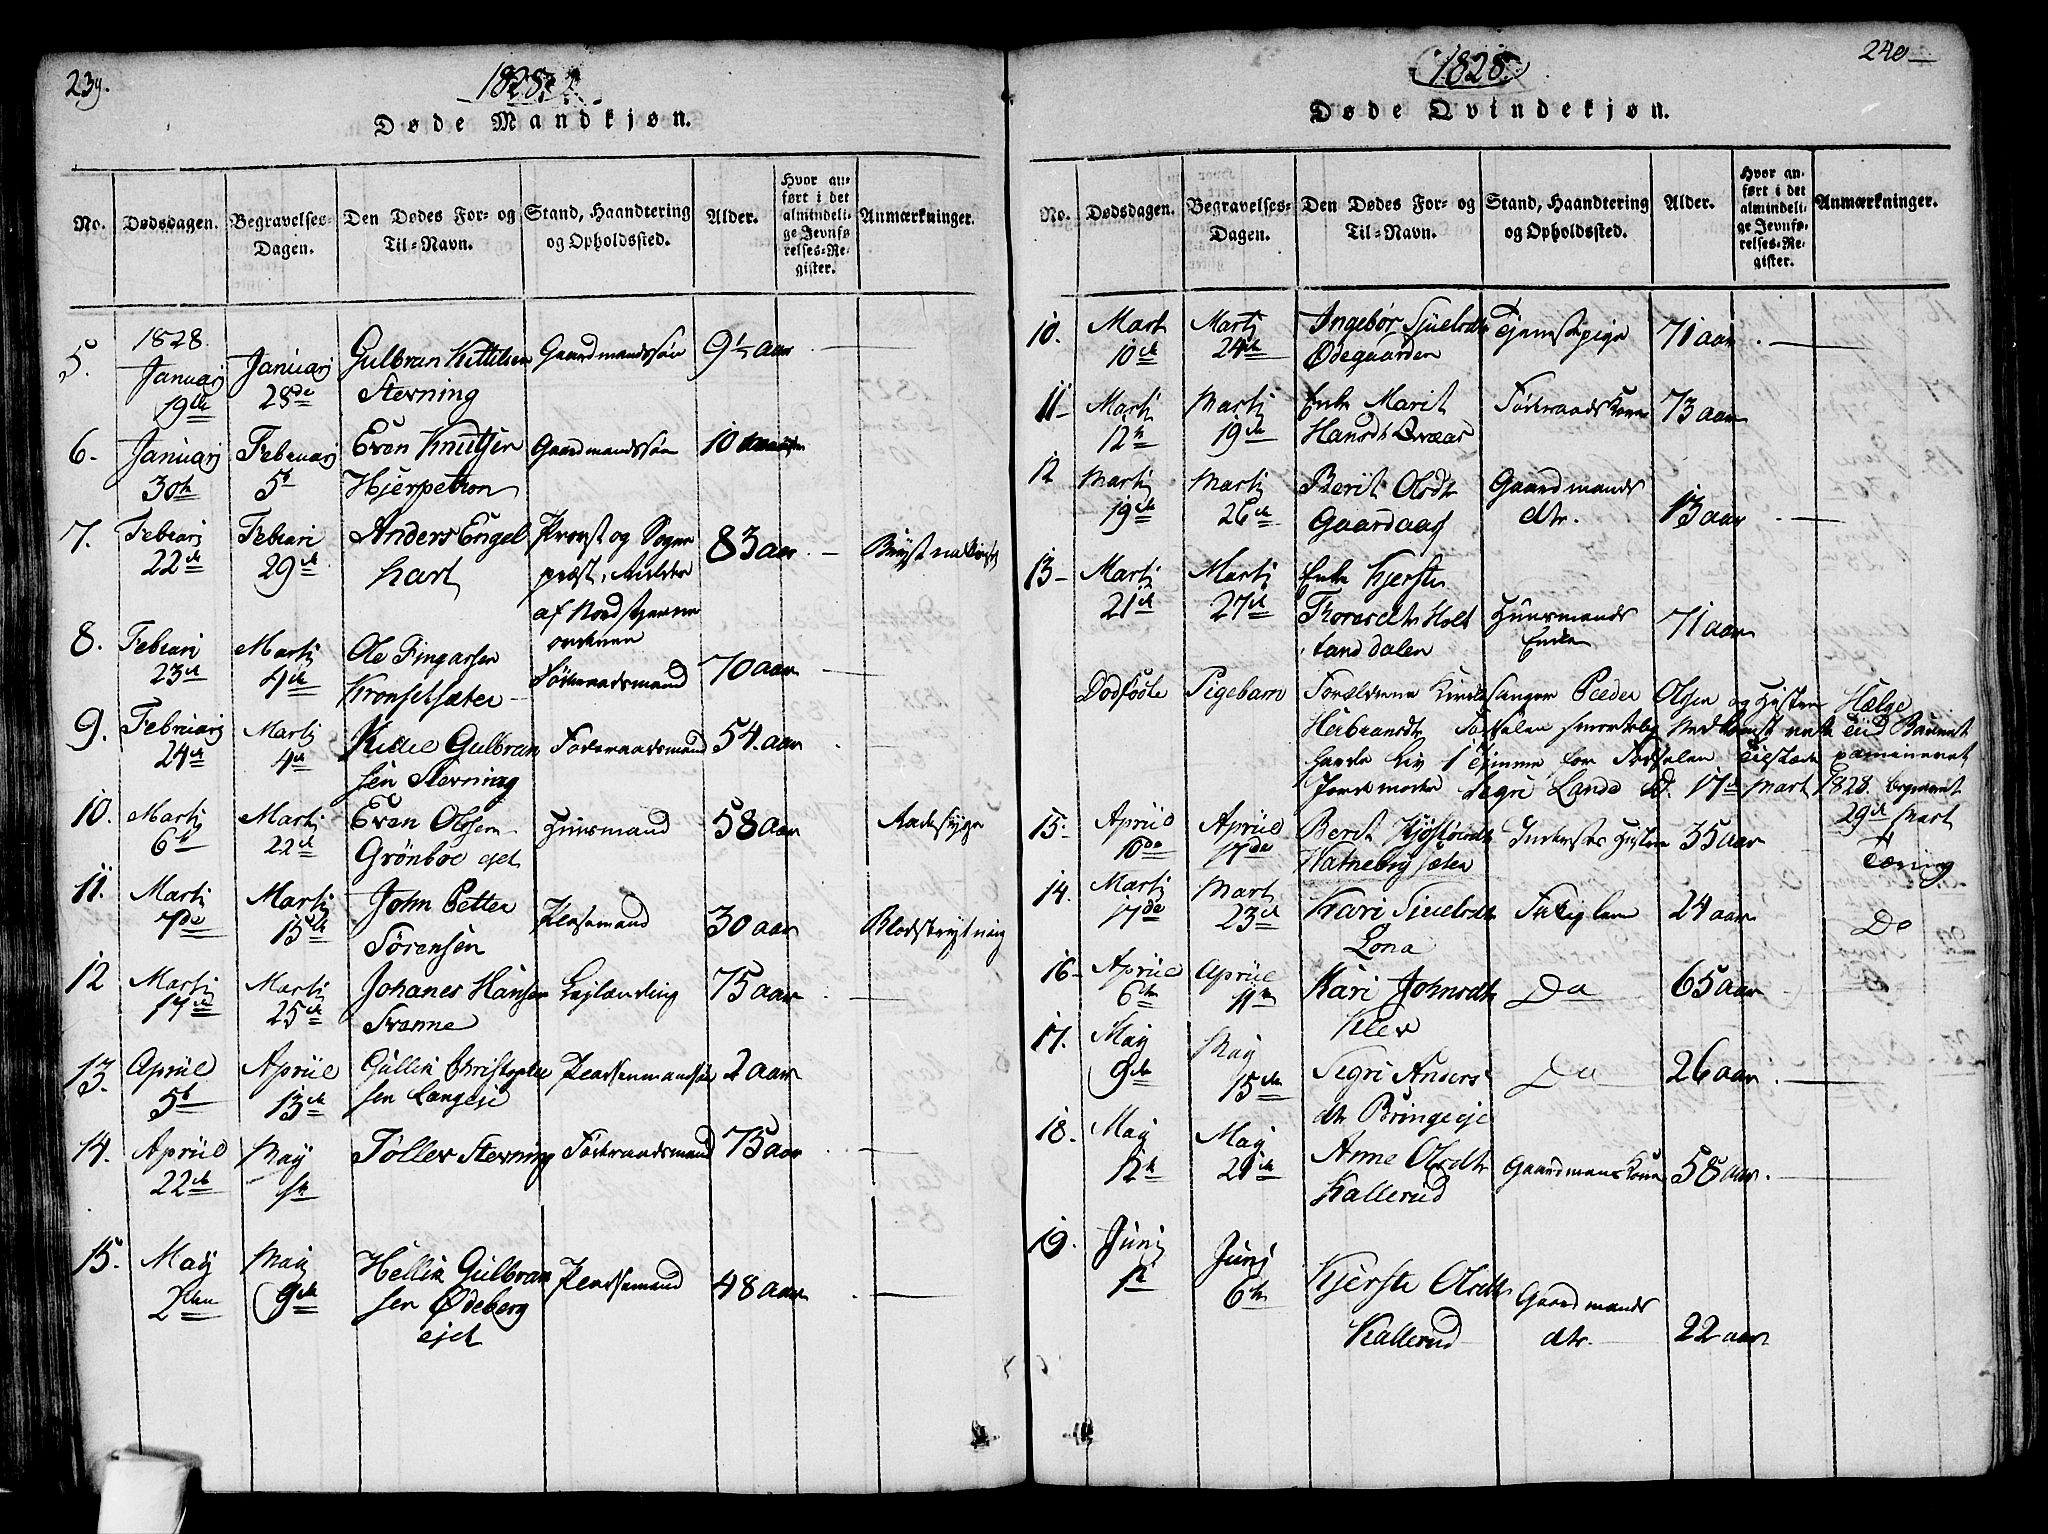 239.
1828.
Døde Mandkjøn.
No.
Dødsdagen.
Begravelses-
Dagen.
Den Dødes For- og
Til-Navn.
Stand, Haandtering
og Opholdssted.
Alder.
Hvor an-
ført i det
almindeli-
ge Jevnfø-
relses-Re-
gister.
Anmærkninger.
5.
1828.
Januarj
19de
Januarj
28de
Gulbran Kittilsen
Sterning
Gaardmandssön
9½ aar
6.
Januarj
30te
Februarj
5t
Even Knutsen
Hjerpetron
Gaardmandssön
10
7.
Februarj
22de
Februari
29de
Anders Engel
hart
Provst og Sogne
præst, Ridder
af Nordstjerne
ordenen
83 aar
8.
Februari
23de
Martij
4de
Ole Fingarsen
Kronselsæter
Föderaadsmand
70 aar
9.
Februarj
24de
Martij
4de
Kittil Gulbran
sen Sterning
Föderaadsmand
54 aar
10.
Martij
6t
Martij
22de
Even Olssen
Grönboe ejet
Huusmand
58 aar
Radesyge
11.
Martij
7de
Martij
15de
John Petter
Sörensen
30 aar
Blodstyrtning
12
Martij
17de
Martij
25de
Johanes Hansen
Tranne
75 aar
13.
Apriil
5t
Apriil
13de
Gullik Christophe
sen Langeje
2 aar
14.
Apriil
22de
Maij
1ste
Tollev Sterning
Föderaadsmand
75 aar
15.
Maij
2den
Maij
9de
Hellik Gulbran
sen Ødeberg
ejet
48 aar
240
1828.
Døde Qvindekjøn.
No.
Dødsdagen.
Begravelses-
Dagen.
Den Dødes For- og
Til-Navn.
Stand, Haandtering
og Opholdssted.
Alder.
Hvor an-
ført i det
almindeli-
ge Jevnfø-
relses-Re-
gister.
Anmærkninger.
10.
Mart
10de
Martij
24de
Ingebor Siuelsdtr
Ødegaarden
Tjenstepige
71 aar
11
Martij
12te
Martij
19de
Enke Marit
Hansdtr
Föderaads kone
73 aar
12
Martij
19de
Martij
26de
Berit Olsdtr
Gaardaas
Gaardmands
dtr.
13 aar
13
Martij
21de
Martij
27de
Enke Kjersti
Thoresdtr Holt
landdalen
Huusmands
Enke
71 aar
Dödföte
Pigebarn
Forældrene Kirkesanger Peder Olsen og Hustru Hælge
Herbrandsdtr
havde Liv 1 Time
Jordemoder Sigri Lande d. 17de Mart 1828. begravet
29de Mart
15.
Apriil
10de
Apriil
17de
Berit
Hustru
35 aar
Tæring
14.
Martij
17de
Mart
23de
Kari Siuelsdtr
Lona
24 aar
Do
16
Apriil
6te
Apriil
11te
Kari Johnsdtr
Klev
Do
65 aar
17.
Maij
9de
Maij
15de
Segri Anders
dtr Bringeeje
Do
26 aar
18.
Maij
12te
Maij
21de
Anne Olsdtr
Kallerud
Gaardmans kone
58 aar
19.
Junij
1ste
Junij
6te
Kjersti Olsdtr
Kallerud
Gaardmands
dtr.
22 aar